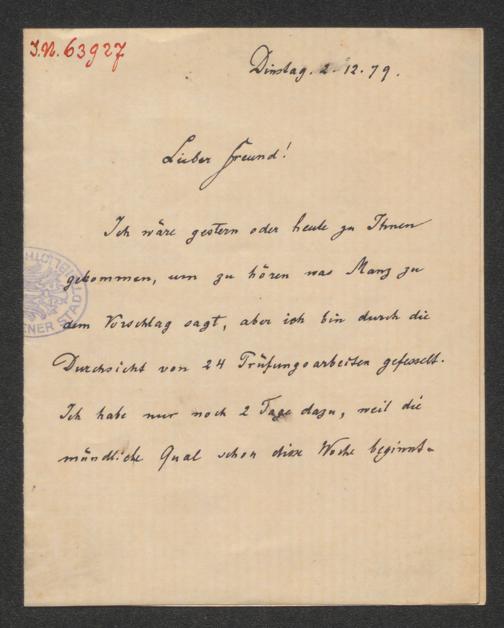 J.N. 63927
Dinstag. 2. 12. 79.
Lieber Freund!
Ich wäre gestern oder heute zu Ihnen
gekommen, um zu hören was Manz zu
dem Vorschlag sagt, aber ich bin durch die
Durchsicht von 24 Prüfungsarbeiten gefesselt.
Ich habe nur noch 2 Tage dazu, weil die
mündliche Qual schon diese Woche beginnt.